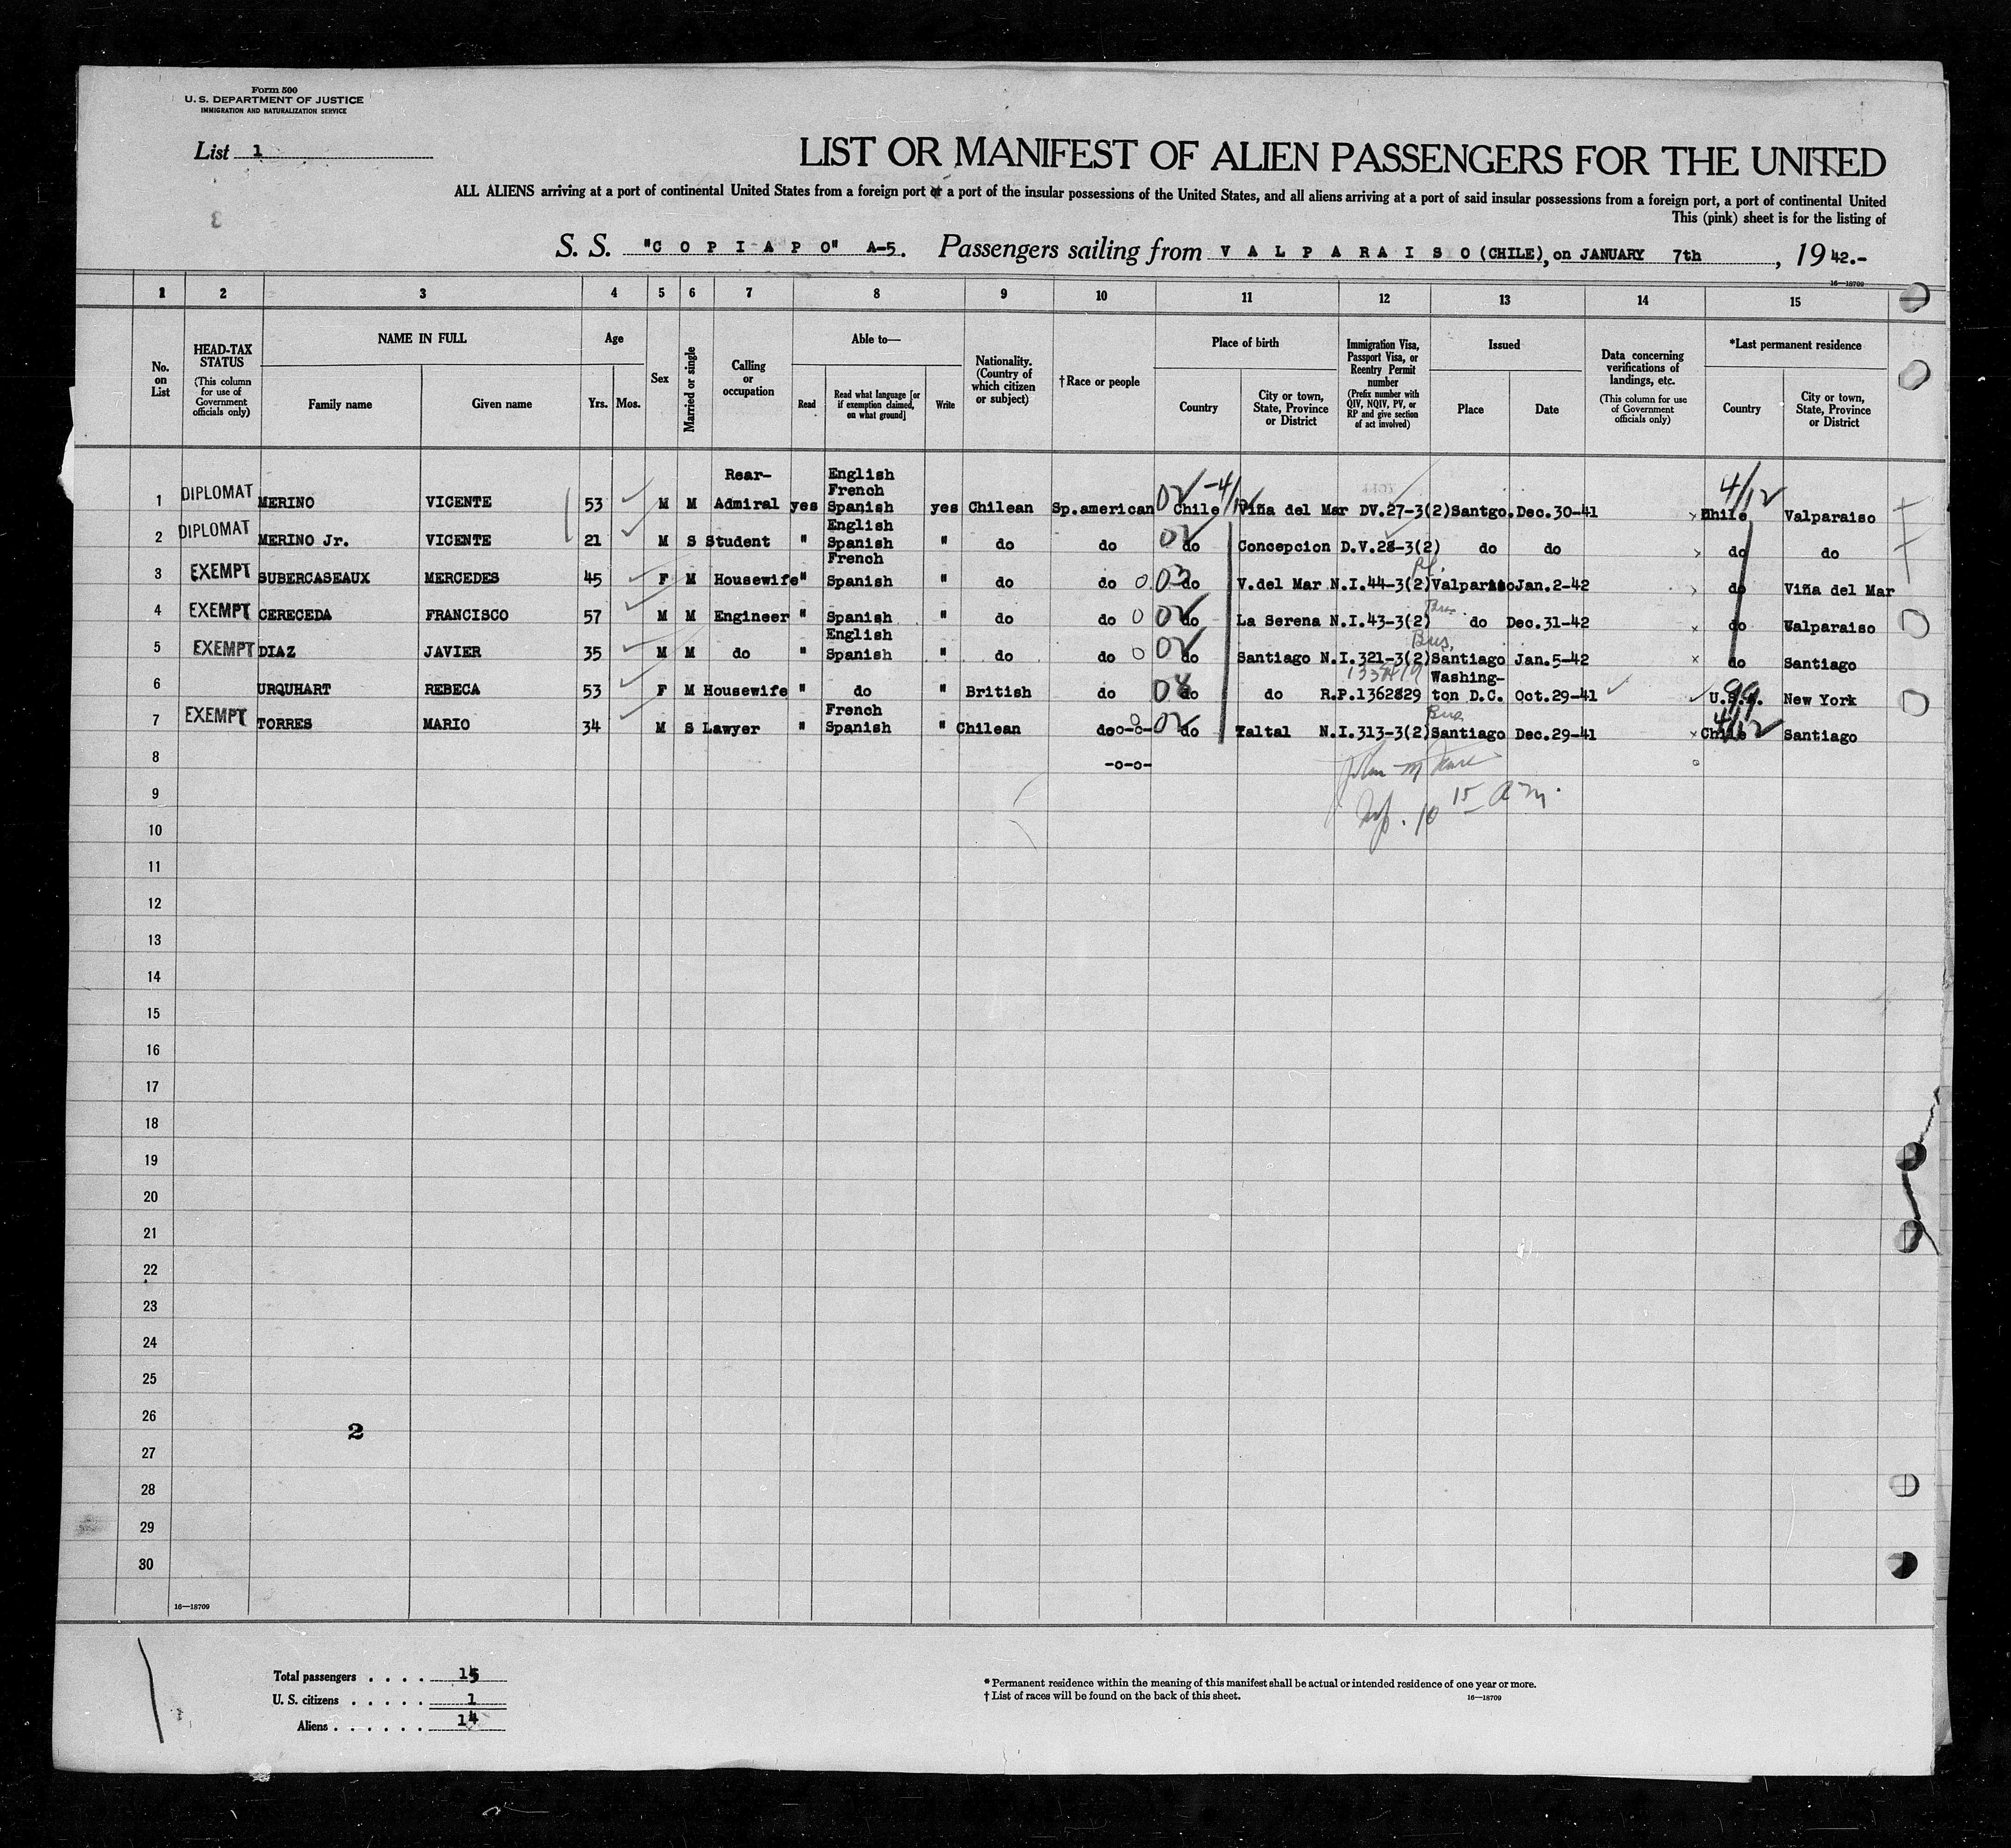 Form 500
U. S. DEPARTMENT OF JUSTICE
IMMIGRATION AND NATURALIZATION SERVICE
List 1
LIST OR MANIFEST OF ALIEN PASSENGERS FOR THE UNITED
ALL ALIENS arriving at a port of continental United States from a foreign port or a port of the insular possessions of the United States, and all aliens arriving at a port of said insular possessions from a foreign port, a port of continental United
This (pink) sheet is for the listing of
S. S. "C O P I A P O" A-5. Passengers sailing from V A L P A R A I S O (CHILE), on JANUARY 7th, 1942.-
16—18709
1 2 3 4 5 6 7 8 9 10 11 12 13 14 15
No. on List
HEAD-TAX STATUS (This column for use of Government officials only)
NAME IN FULL
Family name Given name
Age
Yrs. Mos.
Sex
Married or single
Calling or occupation
Able to—
Read
Read what language [or if exemption claimed, on what ground]
Write
Nationality. (Country of which citizen or subject)
†Race or people
Place of birth
Country
City or town, State, Province or District
Immigration Visa, Passport Visa, or Reentry Permit number (Prefix number with QIV, NQIV, PV, or RP and give section of act involved)
Issued
Place Date
Data concerning verifications of landings, etc. (This column for use of Government officials only)
*Last permanent residence
Country
City or town, State, Province or District
1 DIPLOMAT MERINO VICENTE 53 M M Rear-Admiral yes English French Spanish yes Chilean Sp.american 02 -4/12 Chile Viña del Mar DV.27-3(2) Santgo. Dec.30-41 4/12 Chile Valparaiso
2 DIPLOMAT MERINO Jr. VICENTE 21 M S Student " English Spanish " do do 02 do Concepcion D.V.28-3(2) do do do do
3 EXEMPT SUBERCASEAUX MERCEDES 45 F M Housewife " French Spanish " do do 0 03 do V.del Mar N.I.44-3(2) Pl. Valparaiso Jan.2-42 do Viña del Mar
4 EXEMPT CERECEDA FRANCISCO 57 M M Engineer " Spanish " do do 0 02 do La Serena N.I.43-3(2) Bus. do Dec.31-42 do Valparaiso
5 EXEMPT DIAZ JAVIER 35 M M do " English Spanish " do do 0 02 do Santiago N.I.321-3(2) Bus. Santiago Jan.5-42 do Santiago
6 URQUHART REBECA 53 F M Housewife " do " British do 04 do do R.P.1362829 Washington D.C. Oct.29-41 U.S.A. 99 New York
7 EXEMPT TORRES MARIO 34 M S Lawyer " French Spanish " Chilean do -o-o- 02 do Taltal N.I.313-3(2) Bus. Santiago Dec.29-41 4/12 Chile Santiago
8 -o-o-
9
10 10 15 am.
11
12
13
14
15
16
17
18
19
20
21
22
23
24
25
26
2
27
28
29
30
16—18709
Total passengers . . . . 15
U. S. citizens . . . . . 1
Aliens . . . . . . 14
* Permanent residence within the meaning of this manifest shall be actual or intended residence of one year or more.
† List of races will be found on the back of this sheet.
16—18709